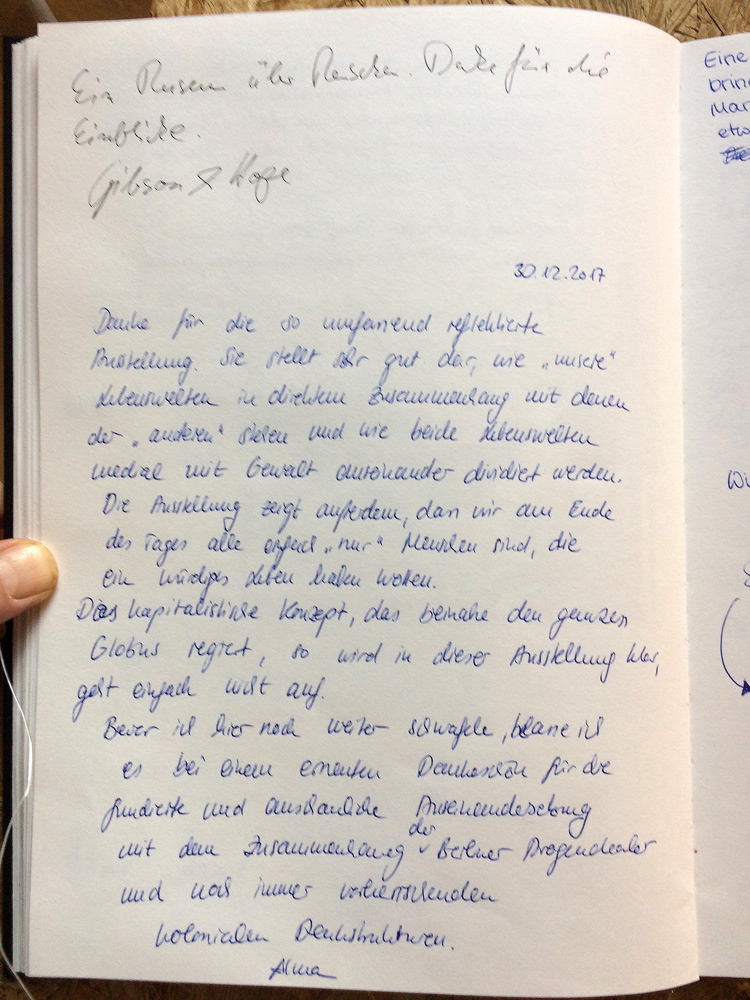 Ein Museum über Menschen. Danke für die
Einblicke.
Gibson & Hope
30.12.2017
Danke für die so umfassend reflektierte
Ausstellung. Sie stellt sehr gut dar, wie „unsere“
Lebenswelten in direktem Zusammenhang mit denen
der „anderen“ stehen und wie beide Lebenswelten
medial mit Gewalt auseinander dividiert werden.
Die Ausstellung zeigt außerdem, dass wir am Ende
des Tages alle einfach „nur“ Menschen sind, die
ein würdiges Leben haben wollen.
Das kapitalistische Konzept, das beinahe den ganzen
Globus regiert, so wird in dieser Ausstellung klar,
geht einfach nicht auf.
Bevor ich hier noch weiter schwafele, belasse ich
es bei einem erneuten Dankeschön für die
fundierte und anschauliche Auseinandersetzung
mit dem Zusammenhang der Berliner Drogendealer
und noch immer vorherrschenden
kolonialen Denkstrukturen.
Alma
Eine
Mar